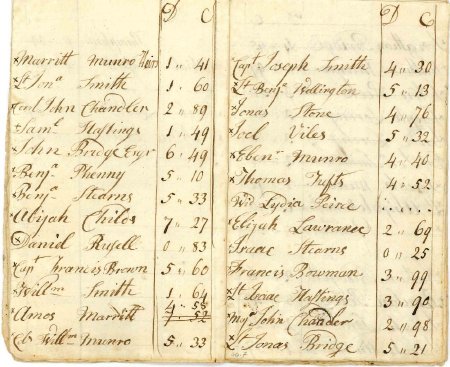 D C
×Marritt Munro Heirs 1 " 41
×Lt Jona Smith 1 " 60
×Cord John Chandler 2 " 89
×Saml Hastings 1 " 49
×John Bridge Esqr 6 " 49
×Benja Phenny 5 " 10
×Benja Stearns 5 " 33
×Abijah Childs 7 " 27
×Daniel Rusell 0 " 83
×Capt Francis Brown 5 " 60
×Willm Smith 1 " 64
×Amos Marritt 4 " 58
7 " 52
Willm Munro 5 " 33
D C
×Capt Joseph Smith 4 " 30
×Lt Benja Wellington 5 " 13
×Jonas Stone 4 " 76
×Joel Viles 5 " 32
×Ebenr Munro 4 " 40
×Thomas Tufts 4 " 52
Wd Lydia Peirce ....
×Elijah Lawrance 2 " 69
×Isaac Stearns 0 " 25
×Francis Bowman 3 " 99
×Lt Isaac Hastings 3 " 90
×Majr John Chander 2 " 98
×Lt Jonas Bridge 5 " 21